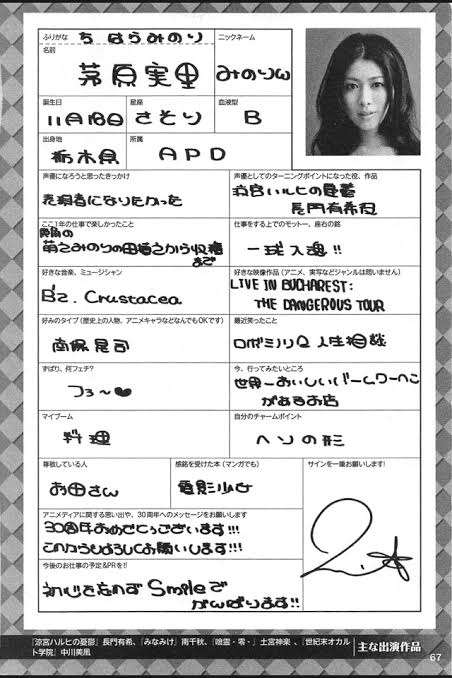 ふりがな ちはらみのり
ニックネーム
名前
茅原実里
みのりん
誕生日
11月18日
星座
さそり
血液型
B
出身地
栃木県
所属
APD
声優になろうと思ったきっかけ
表現者になりたかった
声優としてのターニングポイントになった役、作品
涼宮ハルヒの憂鬱
長門有希役
ここ1年の仕事で楽しかったこと
みのりの田植えから収穫
まで
仕事をする上でのモットー、座右の銘
一球入魂!!
好きな音楽、ミュージシャン
B'z. Crustacea
好きな映像作品(アニメ、実写などジャンルは問いません)
LIVE IN BUCHAREST:
THE DANGEROUS TOUR
好みのタイプ(歴史上の人物、アニメキャラなどなんでもOKです)
南塚晃司
最近笑ったこと
ロボミノリQ人生相談
ずばり、何フェチ?
つぅ〜♥
今、行ってみたいところ
世界一おいしいバームクーヘン
があるお店
マイブーム
料理
自分のチャームポイント
ヘソの形
尊敬している人
お母さん
感銘を受けた本(マンガでも)
電影少女
サインを一筆お願いします!
アニメディアに関する思い出や、30周年へのメッセージをお願いします
30周年おめでとうございます!!!
これからもよろしくお願いします!!!
今後のお仕事の予定&PRを!!
初心を忘れずSmileで
がんばります!!
『涼宮ハルヒの憂鬱』長門有希、『みなみけ』南千秋、『喰霊-零-』土宮神楽、『世紀末オカルト学院』中川美風
主な出演作品
67